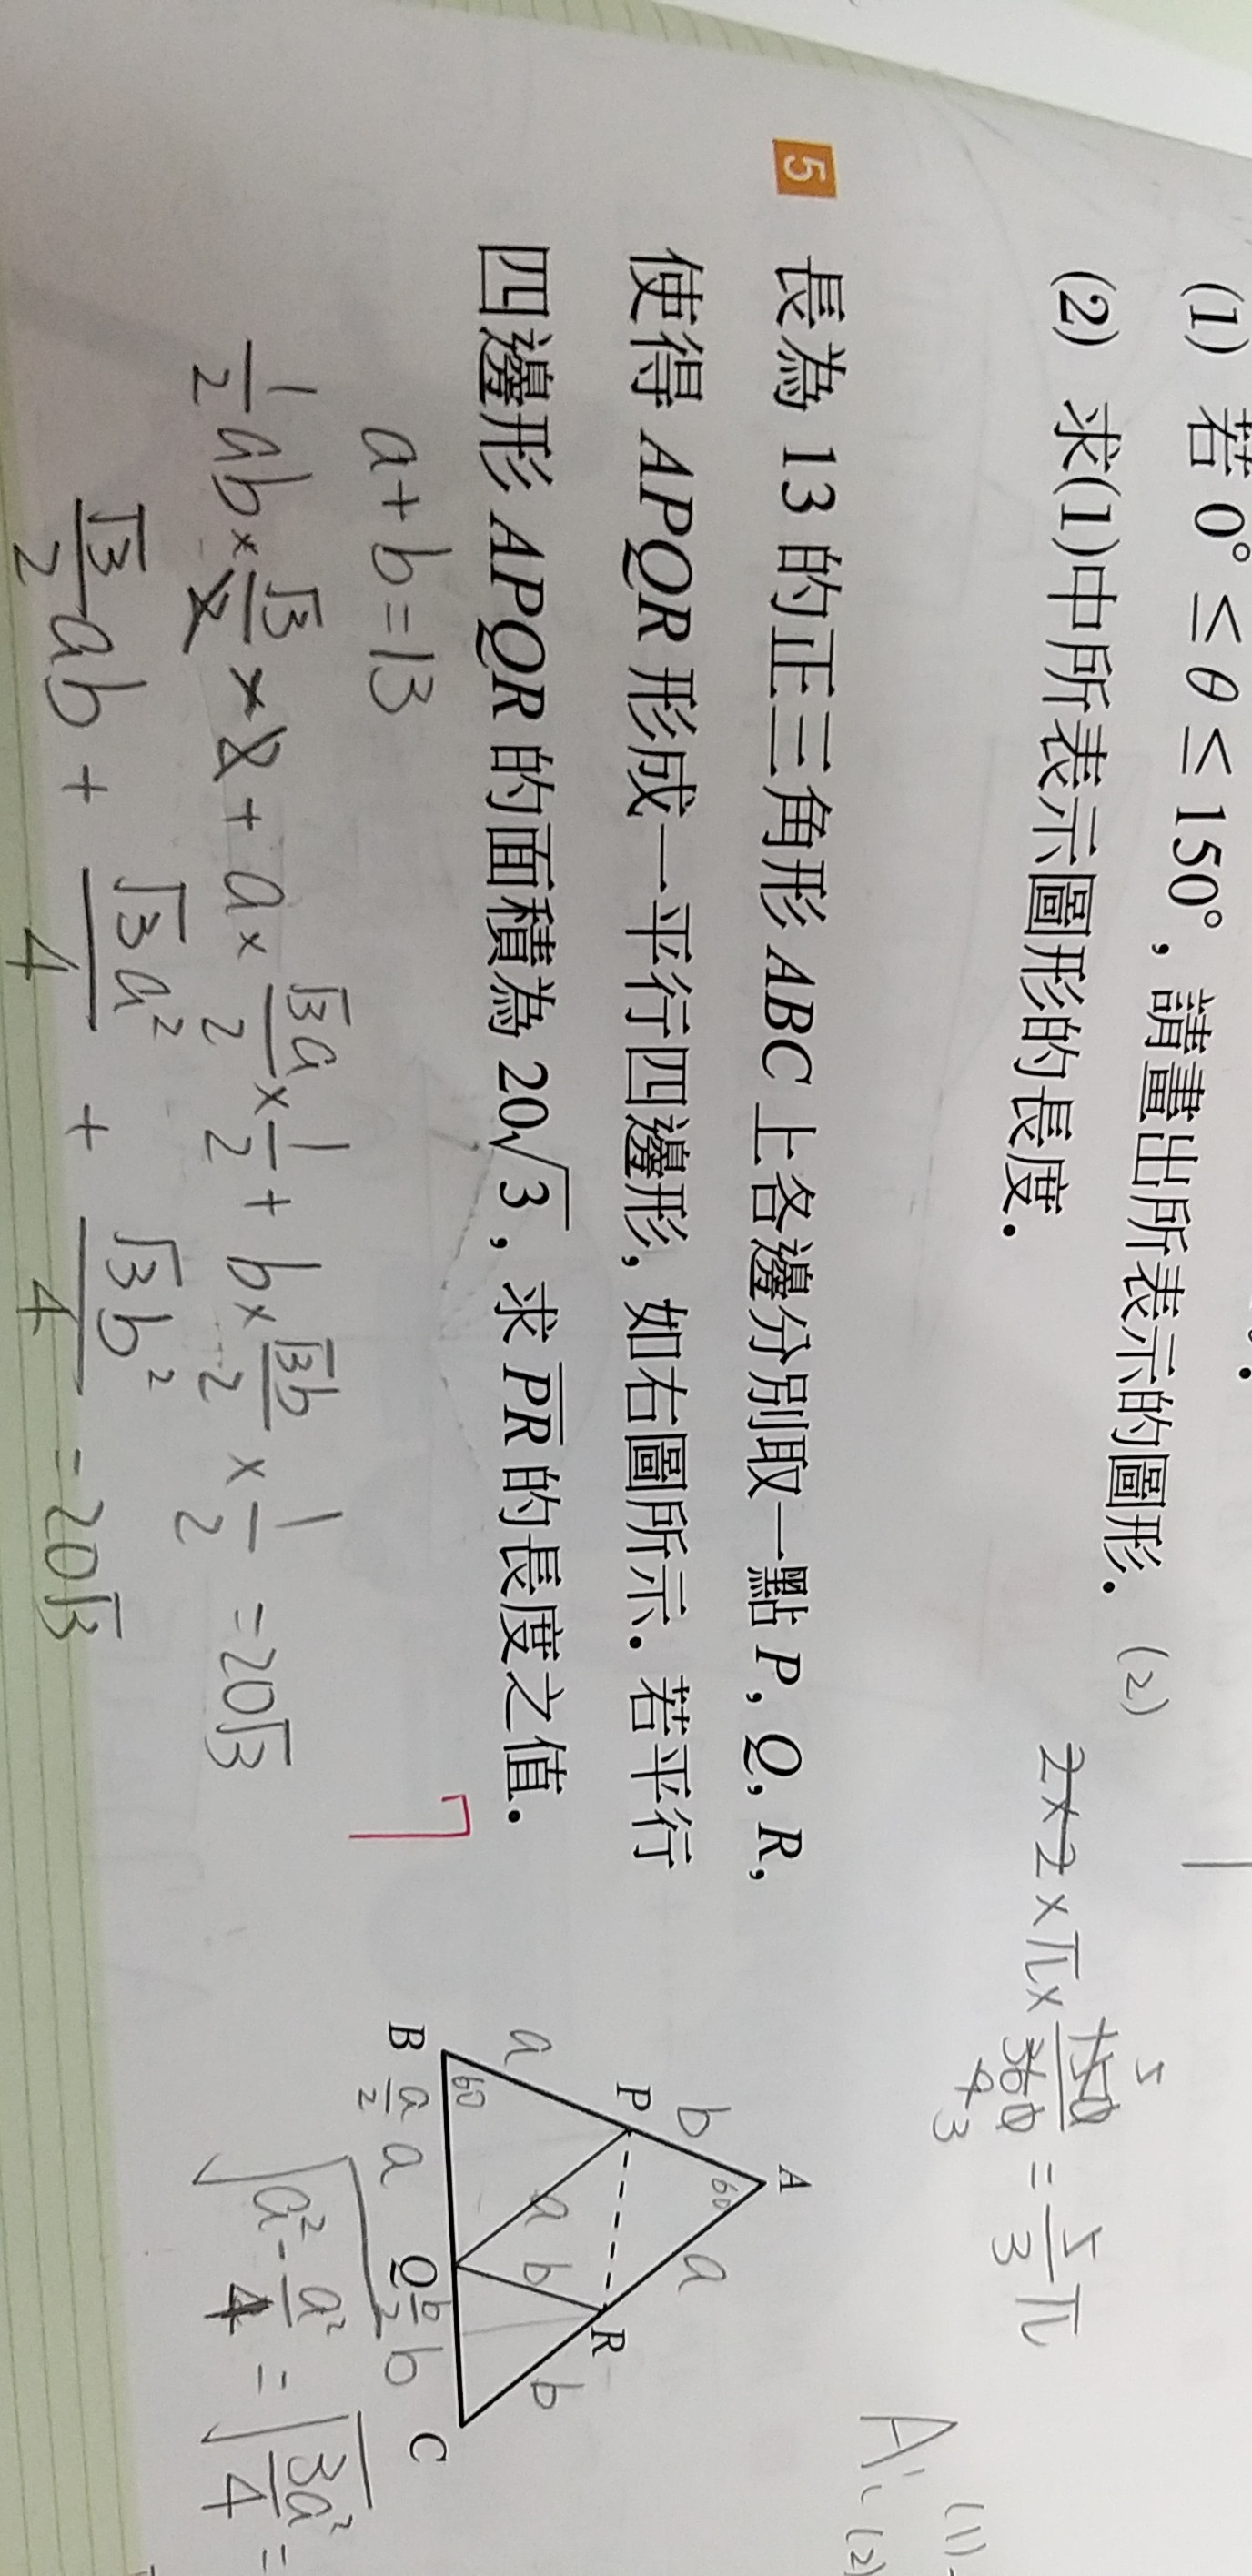 (1) 若 0° ≤ θ ≤ 150°，請畫出所表示的圖形．
(2) 求(1)中所表示圖形的長度．
(2)
2×2×π× 150/360 = 5/3 π
5
4 3
A: (1)
(2)
5 長為 13 的正三角形 ABC 上各邊分別取一點 P, Q, R,
使得 APQR 形成一平行四邊形, 如右圖所示．若平行
四邊形 APQR 的面積為 20√3 , 求 PR 的長度之值．
7
a+b=13
1/2 ab× √3/2 ×2 + a× √3a/2 × 1/2 + b× √3b/2 × 1/2 =20√3
√3/2 ab + √3a²/4 + √3b²/4 =20√3
A
60
b
a
P
R
a
a
b
b
60
B
a/2
a
Q
b/2
b
C
√(a²- a²/4) = √(3a²/4) =